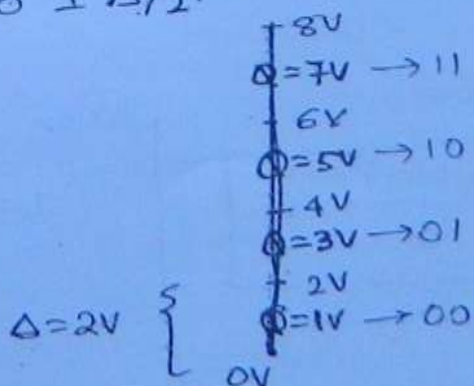 8V
= 7V → 11
6V
= 5V → 10
4V
= 3V → 01
2V
Δ = 2V { = 1V → 00
0V